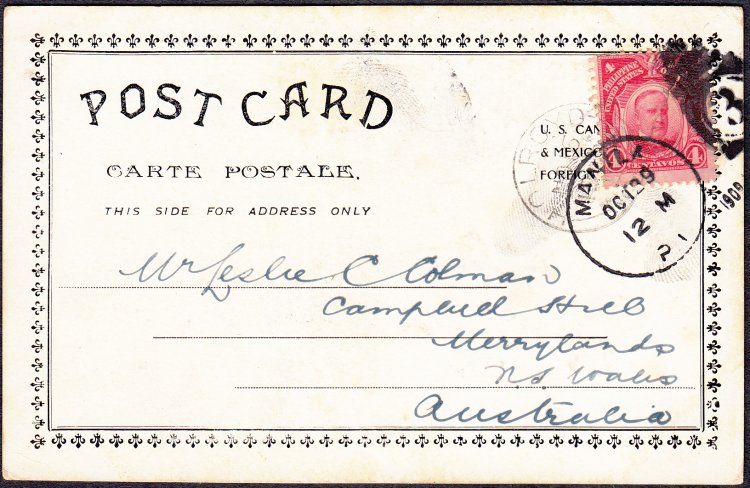 POST CARD
CARTE POSTALE.
THIS SIDE FOR ADDRESS ONLY
U. S. CAN
& MEXICO
FOREIGN
4
PHILIPPINE
UNITED STATES
4
CENTAVOS
MANILA
OCT 29
12 M
1909
Mr Leslie C Colman
Campbell Hill
Merrylands
N S Wales
Australia